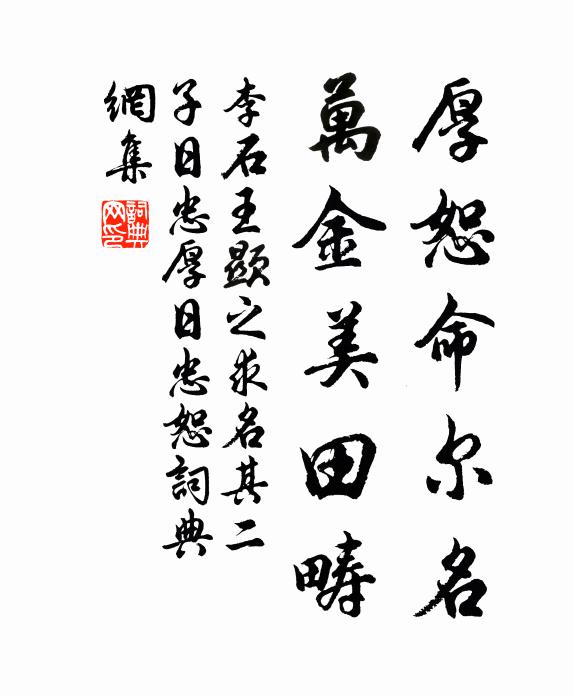 厚恕命尔名
萬金美田疇
李石王顯之求名其二
子日忠厚日忠恕詞典
網集
詞典网印